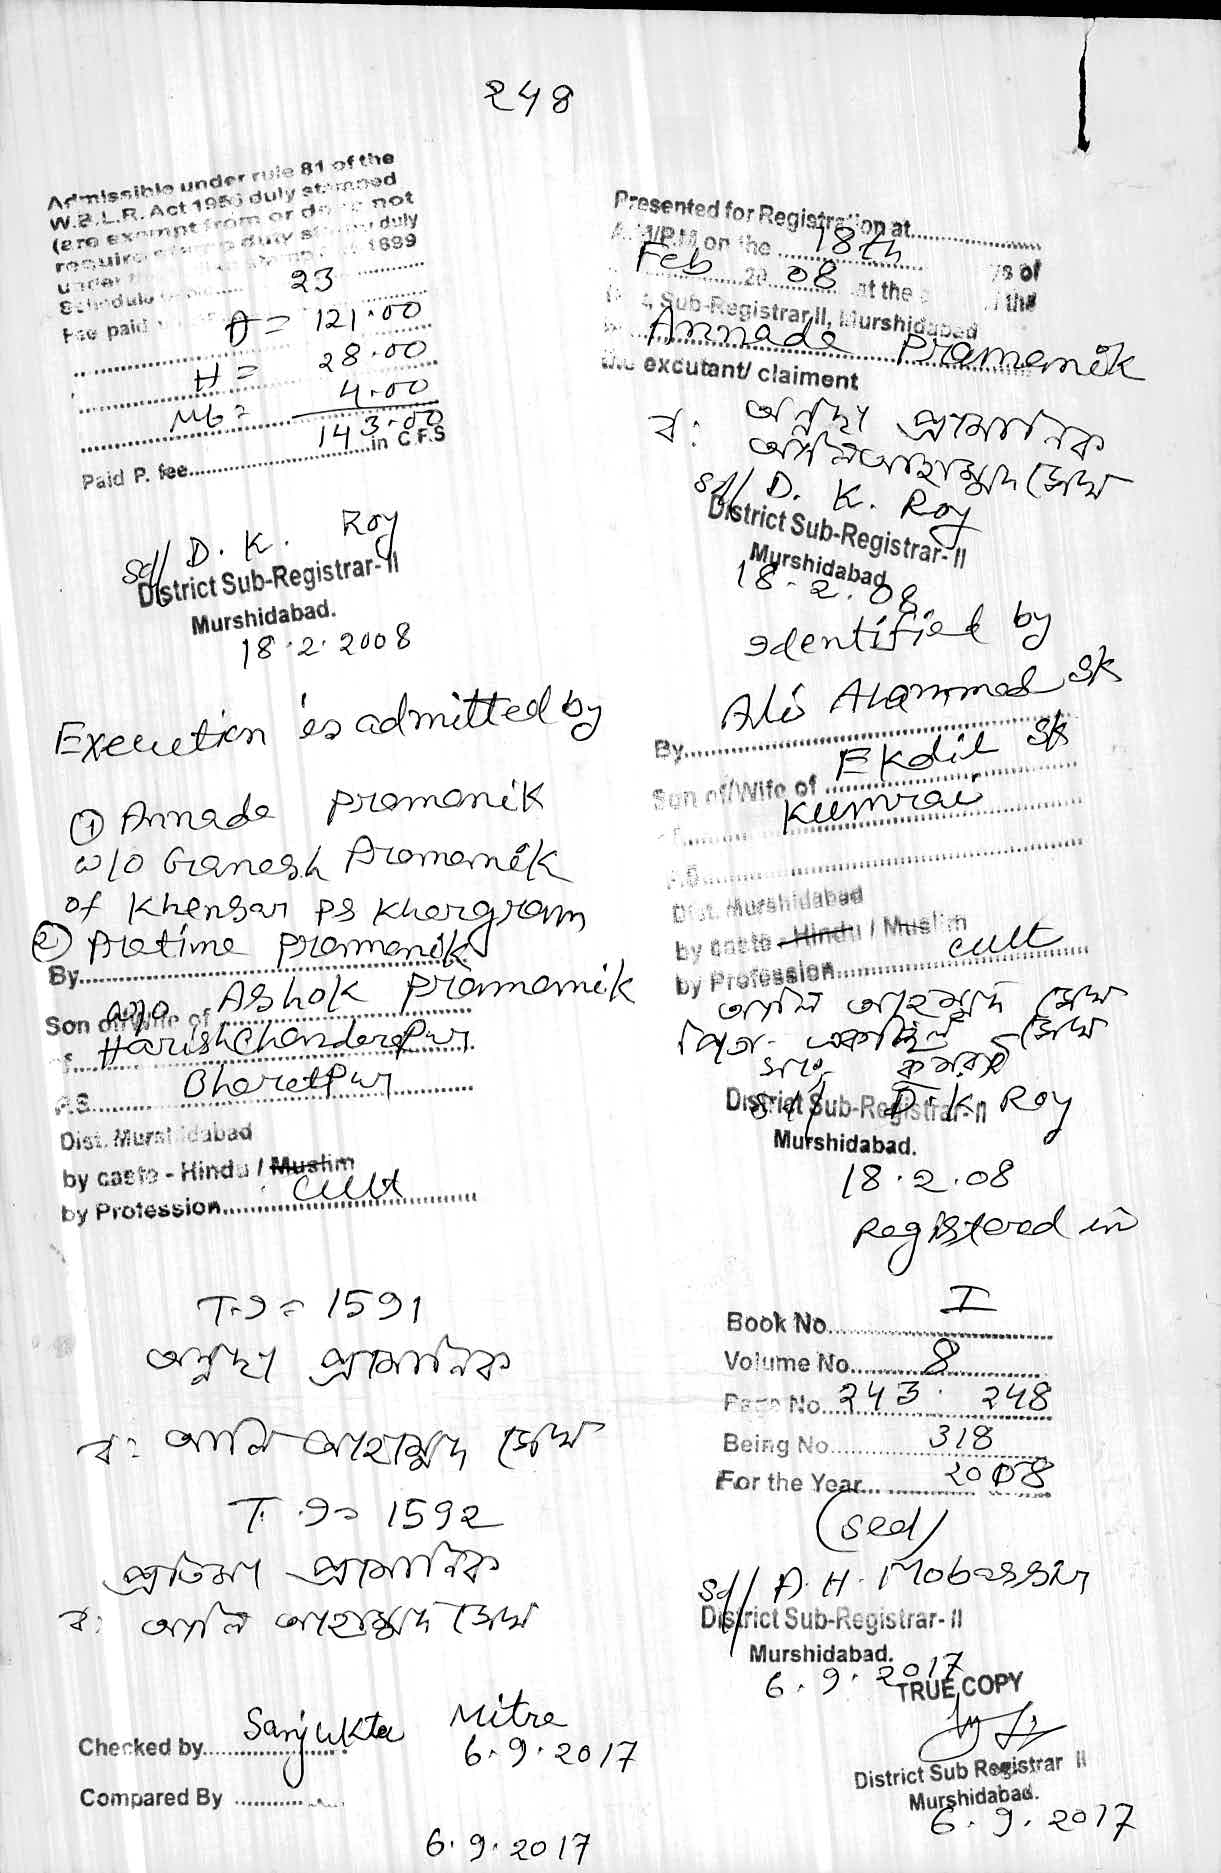 248
Admissible under rule 81 of the
W.B.L.R. Act 1956 duly stamped
(are exempt from or does not
require stamp duty stamp duty
under the 1899
Schedule 23
Fee paid A = 121.00
H = 28.00
Mb = 4.00
143.00
Paid P. fee in C.F.S
Sd/ D. K. Roy
District Sub-Registrar-II
Murshidabad.
18.2.2008
Execution is admitted by
① Annada Pramanik
w/o Ganesh Pramanik
of Khensar PS Khargram
② Pratima Pramanik
By
w/o Ashok Pramanik
Son of/Wife of
of Harishchanderpur
P.S. Bharatpur
Dist. Murshidabad
by caste - Hindu / Muslim
by Profession cult
T.I = 1591
অন্নদা প্রামানিক
ব: আলি আহাম্মদ সেখ
T.I = 1592
প্রতিমা প্রামানিক
ব: আলি আহাম্মদ সেখ
Checked by Sanjukta Mitra
6.9.2017
Compared By
6.9.2017
Presented for Registration at
A.M/P.M on the 18th
Feb 20 08 at the
Sub-Registrar,II, Murshidabad
Annada Pramanik
the excutant/ claiment
অন্নদা প্রামানিক
ব: আলি আহাম্মদ সেখ
Sd/ D. K. Roy
District Sub-Registrar-II
Murshidabad
18.2.08
Identified by
By Ali Ahammad Sk
Son of/Wife of Ekdil Sk
Kumrai
P.S
Dist. Murshidabad
by caste - Hindu / Muslim
by Profession cult
আলি আহম্মদ সেখ
পিতা- একদিল সেখ
সাং কুমরাই
Sd/ D. K. Roy
District Sub-Registrar-II
Murshidabad.
18.2.08
Registered in
Book No. I
Volume No. 8
Page No. 243. 248
Being No. 318
For the Year 2008
(Sed)
Sd/ A. H. Mobassir
District Sub-Registrar-II
Murshidabad.
6.9.2017
TRUE COPY
District Sub Registrar II
Murshidabad.
6.9.2017